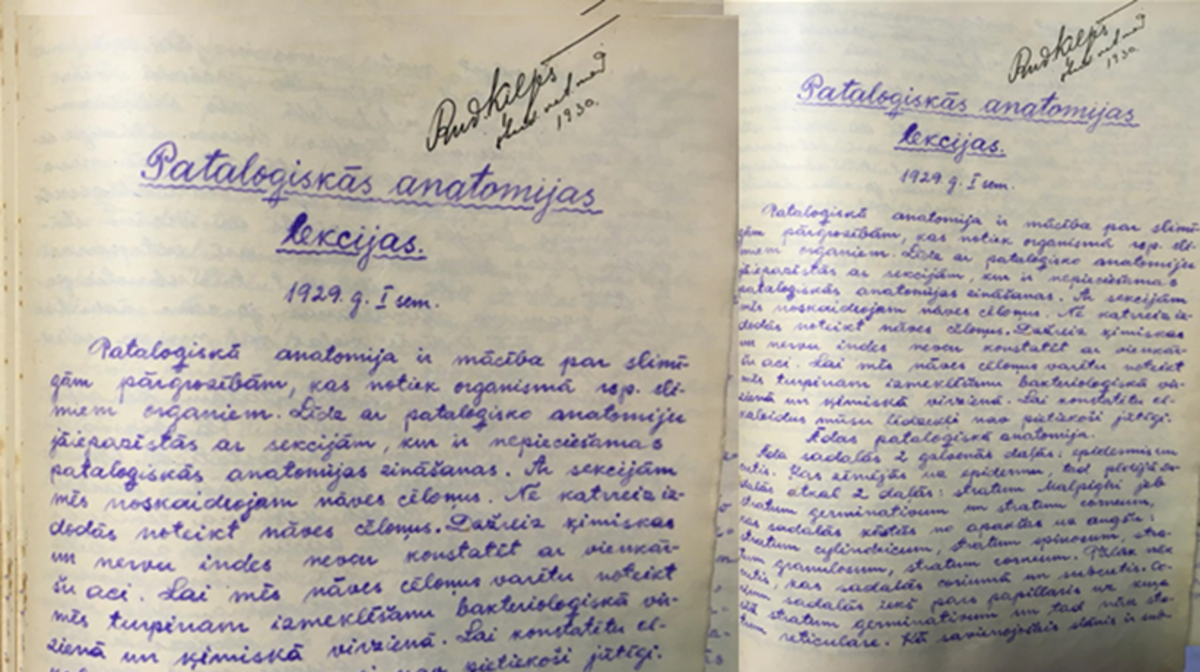 Rud. Kalps
stud. vet. med.
1930.
Pataloģiskās anatomijas
lekcijas.
1929. g. I sem.
Pataloģiskā anatomija ir mācība par slimī-
gām pārgrozībām, kas notiek organismā resp. sli-
miem organiem. Līdz ar pataloģisko anatomiju
jāiepazīstās ar sekcijām, kur ir nepieciešamas
pataloģiskās anatomijas zināšanas. Ar sekcijām
mēs noskaidrojam nāves cēloņus. Ne katrreiz iz-
dodās noteikt nāves cēloņus. Dažreiz ķīmiskas
un nervu indes nevar konstatēt ar vienkār-
šu aci. Lai mēs nāves cēloņus varētu noteikt
mēs turpinam izmeklēšanu bakterioloģiskā vir-
zienā un ķīmiskā virzienā. Lai konstatētu el-
pietiekoši jūtīgi.
Rud. Kalps
stud. vet. med.
1930.
Pataloģiskās anatomijas
lekcijas.
1929. g. I sem.
Pataloģiskā anatomija ir mācība par slimī-
gām pārgrozībām, kas notiek organismā resp. sli-
miem organiem. Līdz ar pataloģisko anatomiju
jāiepazīstās ar sekcijām, kur ir nepieciešamas
pataloģiskās anatomijas zināšanas. Ar sekcijām
mēs noskaidrojam nāves cēloņus. Ne katrreiz iz-
dodās noteikt nāves cēloņus. Dažreiz ķīmiskas
un nervu indes nevar konstatēt ar vienkār-
šu aci. Lai mēs nāves cēloņus varētu noteikt
mēs turpinam izmeklēšanu bakterioloģiskā vir-
zienā un ķīmiskā virzienā. Lai konstatētu el-
kaloidus mūsu līdzekļi nav pietiekoši jūtīgi.
Ādas pataloģiskā anatomija.
Āda sadalās 2 galvenās daļās: epidermis un
cutis. Kas zīmējās uz epidermu, tad
dalās atkal 2 daļās: stratum Malpighi jeb
stratum germinativum un stratum corneum,
kas sadalās no apakšas uz augšu:
stratum cylindricum, stratum spinosum, stra-
tum granulosum, stratum corneum. Tālāk nāk
cutis, kas sadalās coriumā un subcutis. Co-
rium sadalās iekš pars papillaris uz kura
stratum germinativum un tad nāk stra-
tum reticulare. Kā savienojošais slānis ir sub-